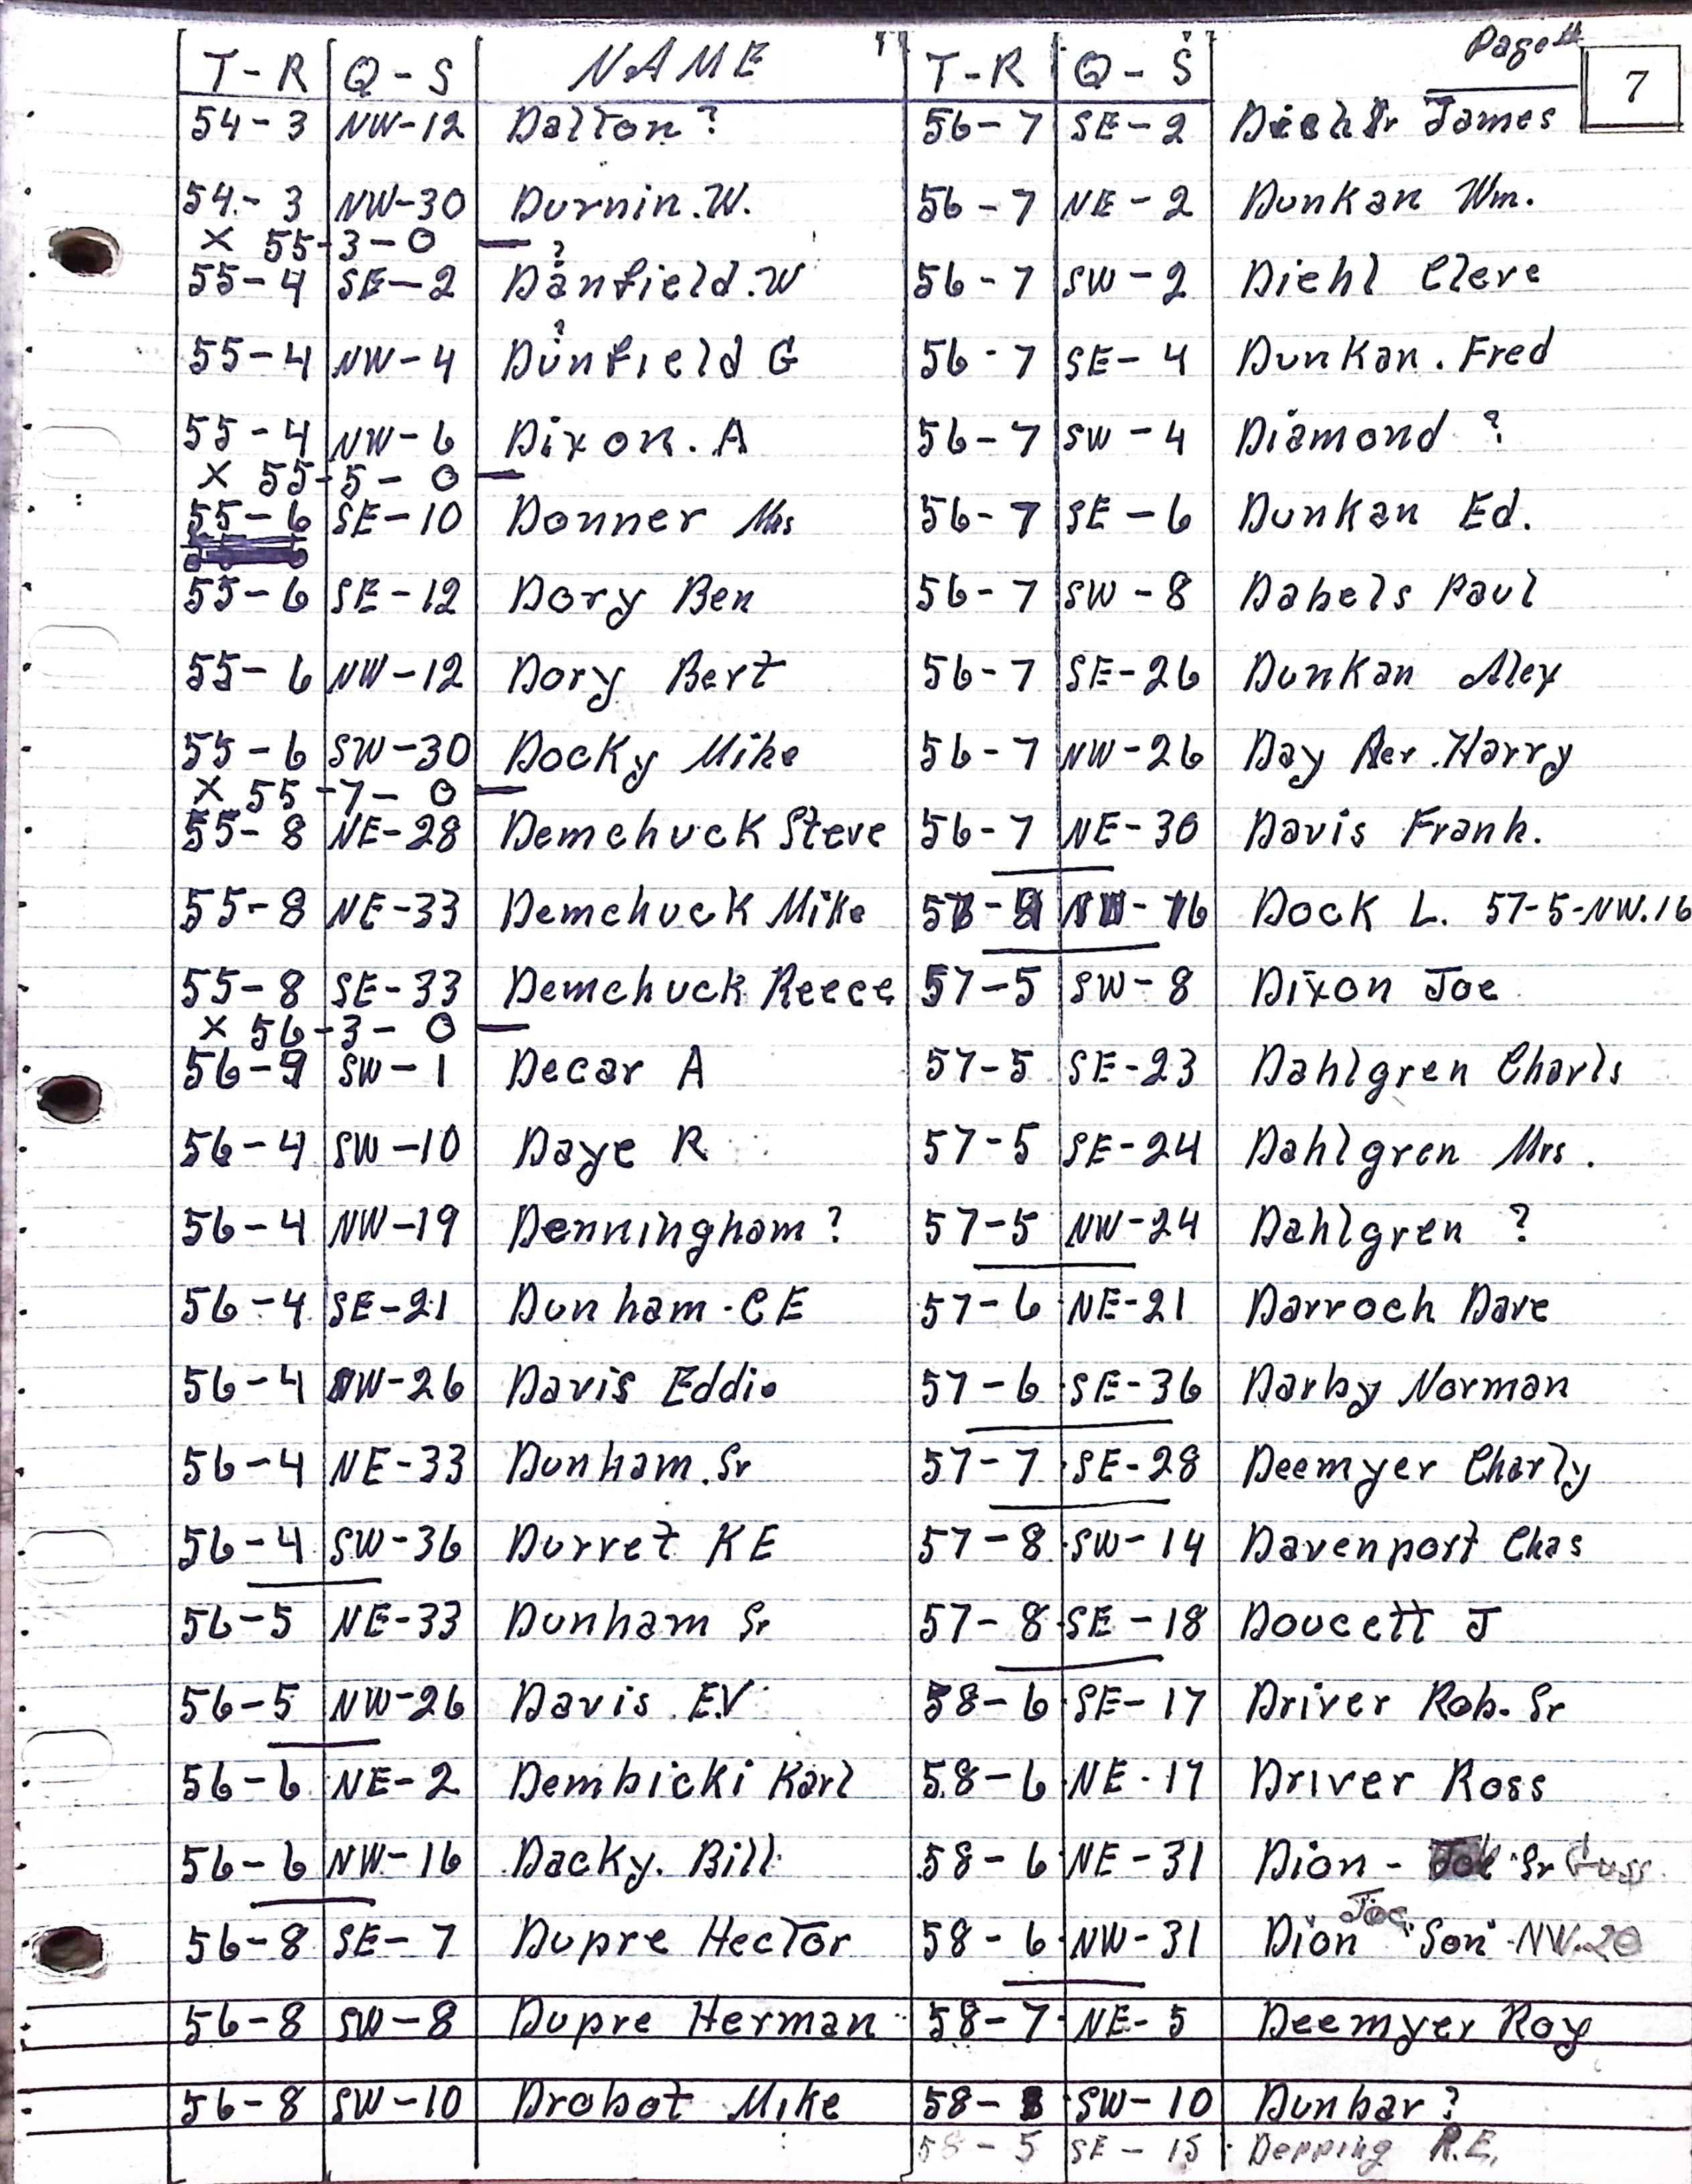 Page #
7
T-R Q-S NAME " T-R Q-S "
54-3 NW-12 Dalton ? 56-7 SE-2 James
54-3 NW-30 Durnin. W. 56-7 NE-2 Dunkan Wm.
X 55-3-0 —
55-4 SE-2 Danfield. W ? 56-7 SW-2 Diehl Cleve
55-4 NW-4 Dunfield G ? 56-7 SE-4 Dunkan. Fred
55-4 NW-6 Dixon. A 56-7 SW-4 Diamond ?
X 55-5-0 —
55-6 SE-10 Donner Mrs 56-7 SE-6 Dunkan Ed.
55-6 SE-12 Dory Ben 56-7 SW-8 Dabels Paul
55-6 NW-12 Dory Bert 56-7 SE-26 Dunkan Alex
55-6 SW-30 Docky Mike 56-7 NW-26 Day Rev. Harry
X 55-7-0 —
55-8 NE-28 Demchuck Steve 56-7 NE-30 Davis Frank.
55-8 NE-33 Demchuck Mike Dock L. 57-5-NW.16
55-8 SE-33 Demchuck Reece 57-5 SW-8 Dixon Joe
X 56-3-0 —
SW-1 Decar A 57-5 SE-23 Dahlgren Charls
56-4 SW-10 Daye R 57-5 SE-24 Dahlgren Mrs.
56-4 NW-19 Denningham ? 57-5 NW-24 Dahlgren ?
56-4 SE-21 Dunham - CE 57-6 NE-21 Darroch Dave
56-4 Davis Eddie 57-6 SE-36 Darby Norman
56-4 NE-33 Dunham. Sr 57-7 SE-28 Deemyer Charly
56-4 SW-36 Durret KE 57-8 SW-14 Davenport Chas
56-5 NE-33 Dunham Sr 57-8 SE-18 Doucett J
56-5 NW-26 Davis E.V 58-6 SE-17 Driver Rob. Sr
56-6 NE-2 Dembicki Karl 58-6 NE-17 Driver Ross
56-6 NW-16 Dacky. Bill 58-6 NE-31 Dion - Sr
56-8 SE-7 Dupre Hector 58-6 NW-31 Dion Joe "Son" NW-20
56-8 SW-8 Dupre Herman 58-7 NE-5 Deemyer Roy
56-8 SW-10 Drobot Mike 58- SW-10 Dunbar ?
58-5 SE-15 Depping R.E.